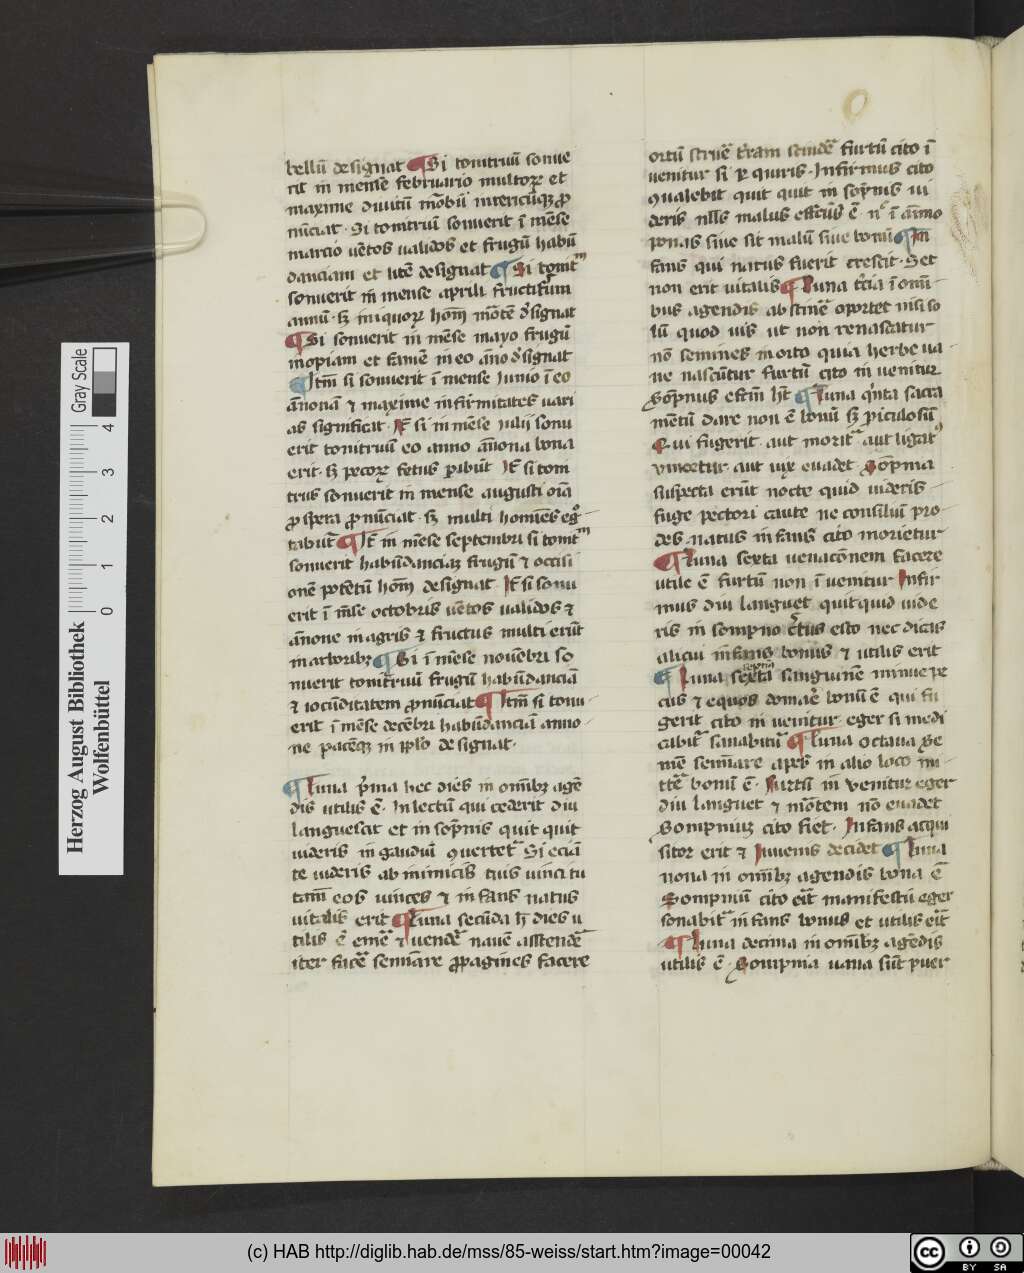 bellū designat ¶ Si tonitruū sonue
rit in mense februario multoꝝ et
maxime diuitū morbū intericiꝫꝗ ꝓ
nūciat · Si tonitruū sonuerit ī mēse
marcio uētos ualidos et frugū habū
danciam et litē designat ¶ Si tonitm
sonuerit in mense aprili fructiferum
annū · sꝫ iniquoꝝ homī mortē designat
¶ Si sonuerit in mēse mayo frugū
inopiam et famē in eo āno designat
¶ Itm̄ si sonuerit ī mense Iunio ī eo
ānonā ⁊ maxime infirmitates uari
as significat · It̄ si in mēse iulij sonu
erit tonitruū eo anno ānona bona
erit · sꝫ pecoꝝ fetus ꝑibūt It̄ si toni
trus sonuerit in mense augusti oīa
ꝓspera ꝓnūciat · sꝫ multi homines egro
tabūt ¶ It̄ in mēse septembri si tonitm
sonuerit habūdanciaꝫ frugū ⁊ occisi
onē potētū homī designat · It̄ si sonu
erit ī mēse octobris uētos ualidos ⁊
ānone in agris ⁊ fructus multi erūt
in arboribꝫ ¶ Si ī mēse nouēbri so
nuerit tonitruū frugū habūdanciā
⁊ iocūditatem ꝓnūciat ¶ Itm̄ si tonu
erit ī mēse decēbri habūdanciā anno
ne pacēqꝫ in pplo designat ·
¶ Luna prima hec dies in omībꝫ agē
dis utilis ē · In lectū qui cederit diu
languescat et in sopnis quit quit
uideris in gaudiū ꝯuertet~ Si eciā
te uideris ab inimicis tuis uinci tu
tam̄ eos uinces ⁊ infans natus
uitalis erit ¶ Luna secūda h̄ dies u
tilis ē emē ⁊ uendē nauē asscendē
iter facē seminare ꝓpagines facere
ortū struē terram scindē furtū cito ī
uenitur si ꝑquiris · Infirmus cito
ꝯualebit quit quit in sopnis ui
deris nullus malus effectus ē · nō ī animo
ponas siue sit malū siue bonū ¶ In
fans qui natus fuerit crescit · Set
non erit uitalis ¶ Luna tercia ī omī
bus agendis abstinē oportet nisi so
lū quod uis ut non renascatur
nō semines in orto quia herbe ua
ne nascūtur furtū cito inuenitur
Sopnus effectm̄ ht̄ ¶ Luna qrta sacra
mētū dare non ē bonū sꝫ ꝑiculosū
Qui fugerit aut morit~ aut ligatus
vincetur aut uix euadet Sopnia
suspecta erūt nocte quid uideris
fuge pectori caute ne consiliū pro
des natus infans cito morietur
¶ Luna sexta uenacōnem facere
utile ē furtū non īuenitur Infir
mus diu languet quitquid uide
ris in sompno certus esto nec dicas
alicui infans bonus ⁊ utilis erit
septima
¶ Luna sexta sanguinē minue pe
cus ⁊ equos domare bonū ē qui fu
gerit cito inuenitur eger si medi
cabit~ sanabitur ¶ Luna octaua Se
mē semīare apes in alio loco mi
ttē bonū ē · Furtū inuenitur eger
diu languet ⁊ mortem nō euadet
Sompniuꝫ cito fiet · Infans acqui
sitor erit ⁊ Iuuenis decidet ¶ Luna
nona in omībꝫ agendis bona ē
Sompniū cito erit manifestū eger
sanabit~ infans bonus et utilis erit
¶ Luna decima in omībꝫ agēdis
utilis ē · Sompnia uana sūt puer
Herzog August Bibliothek
Wolfenbüttel
Gray Scale
0 1 2 3 4
(c) HAB http://diglib.hab.de/mss/85-weiss/start.htm?image=00042
cc BY SA